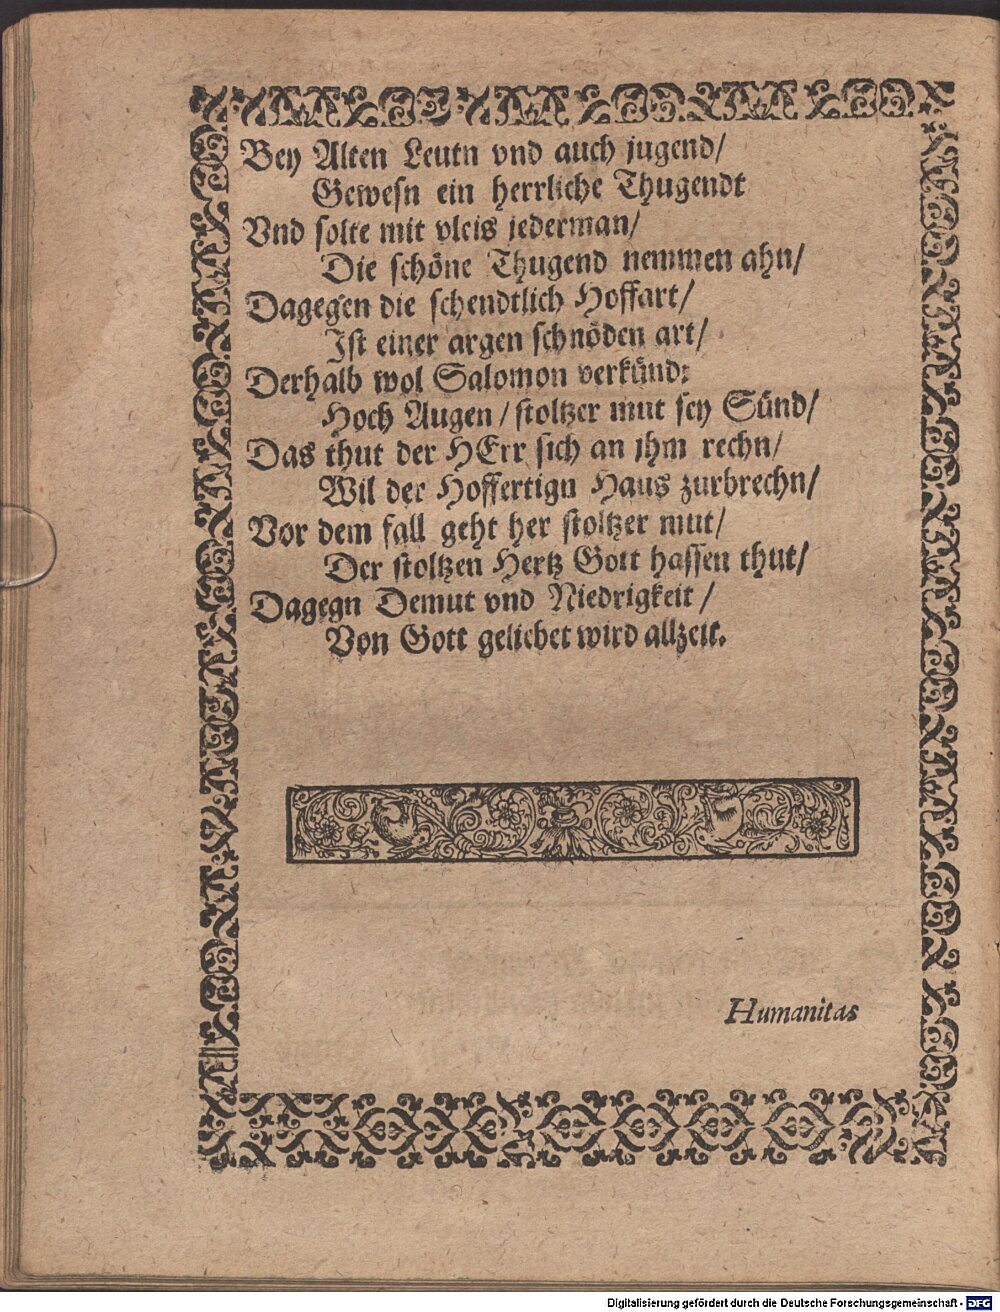 Bey Alten Leutn vnd auch jugend/
Gewesn ein herrliche Thugendt
Vnd solte mit vleis jederman/
Die schöne Thugend nemmen ahn/
Dagegen die schendtlich Hoffart/
Ist einer argen schnöden art/
Derhalb wol Salomon verkünd:
Hoch Augen/ stoltzer mut sey Sünd/
Das thut der HErr sich an jhm rechn/
Wil der Hoffertign Haus zurbrechn/
Vor dem fall geht her stoltzer mut/
Der stoltzen Hertz Gott hassen thut/
Dagegn Demut vnd Niedrigkeit/
Von Gott geliebet wird allzeit.
Humanitas
Digitalisierung gefördert durch die Deutsche Forschungsgemeinschaft - DFG